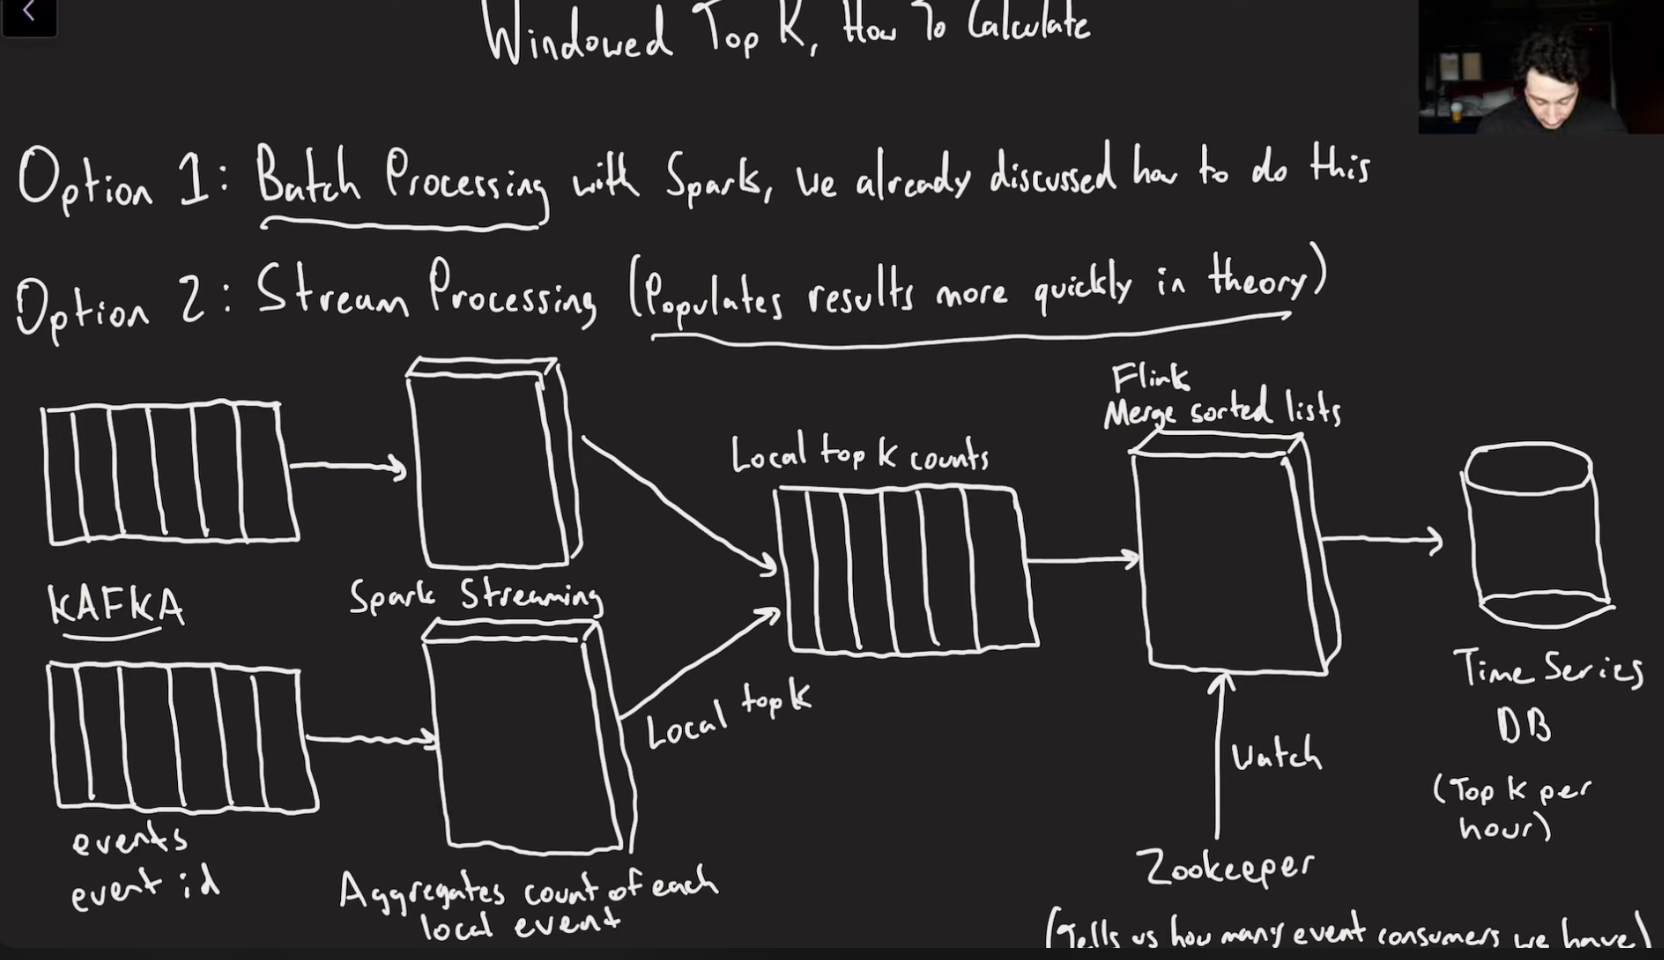 Windowed Top K, How To Calculate
Option 1: Batch Processing with Spark, we already discussed how to do this
Option 2: Stream Processing (Populates results more quickly in theory)
Flink
Merge sorted lists
Local top k counts
KAFKA
Spark Streaming
Local top k
events
event id
Aggregates count of each
local event
Watch
Zookeeper
(Tells us how many event consumers we have)
Time Series
DB
(Top k per
hour)